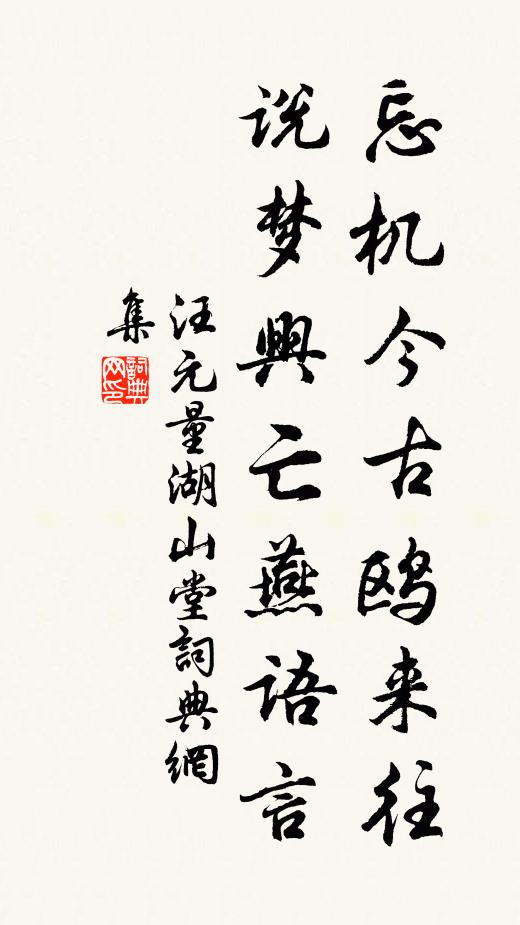 忘机今古鸥来往
说梦興亡燕語言
汪元量湖山堂詞典網
集
詞典网印